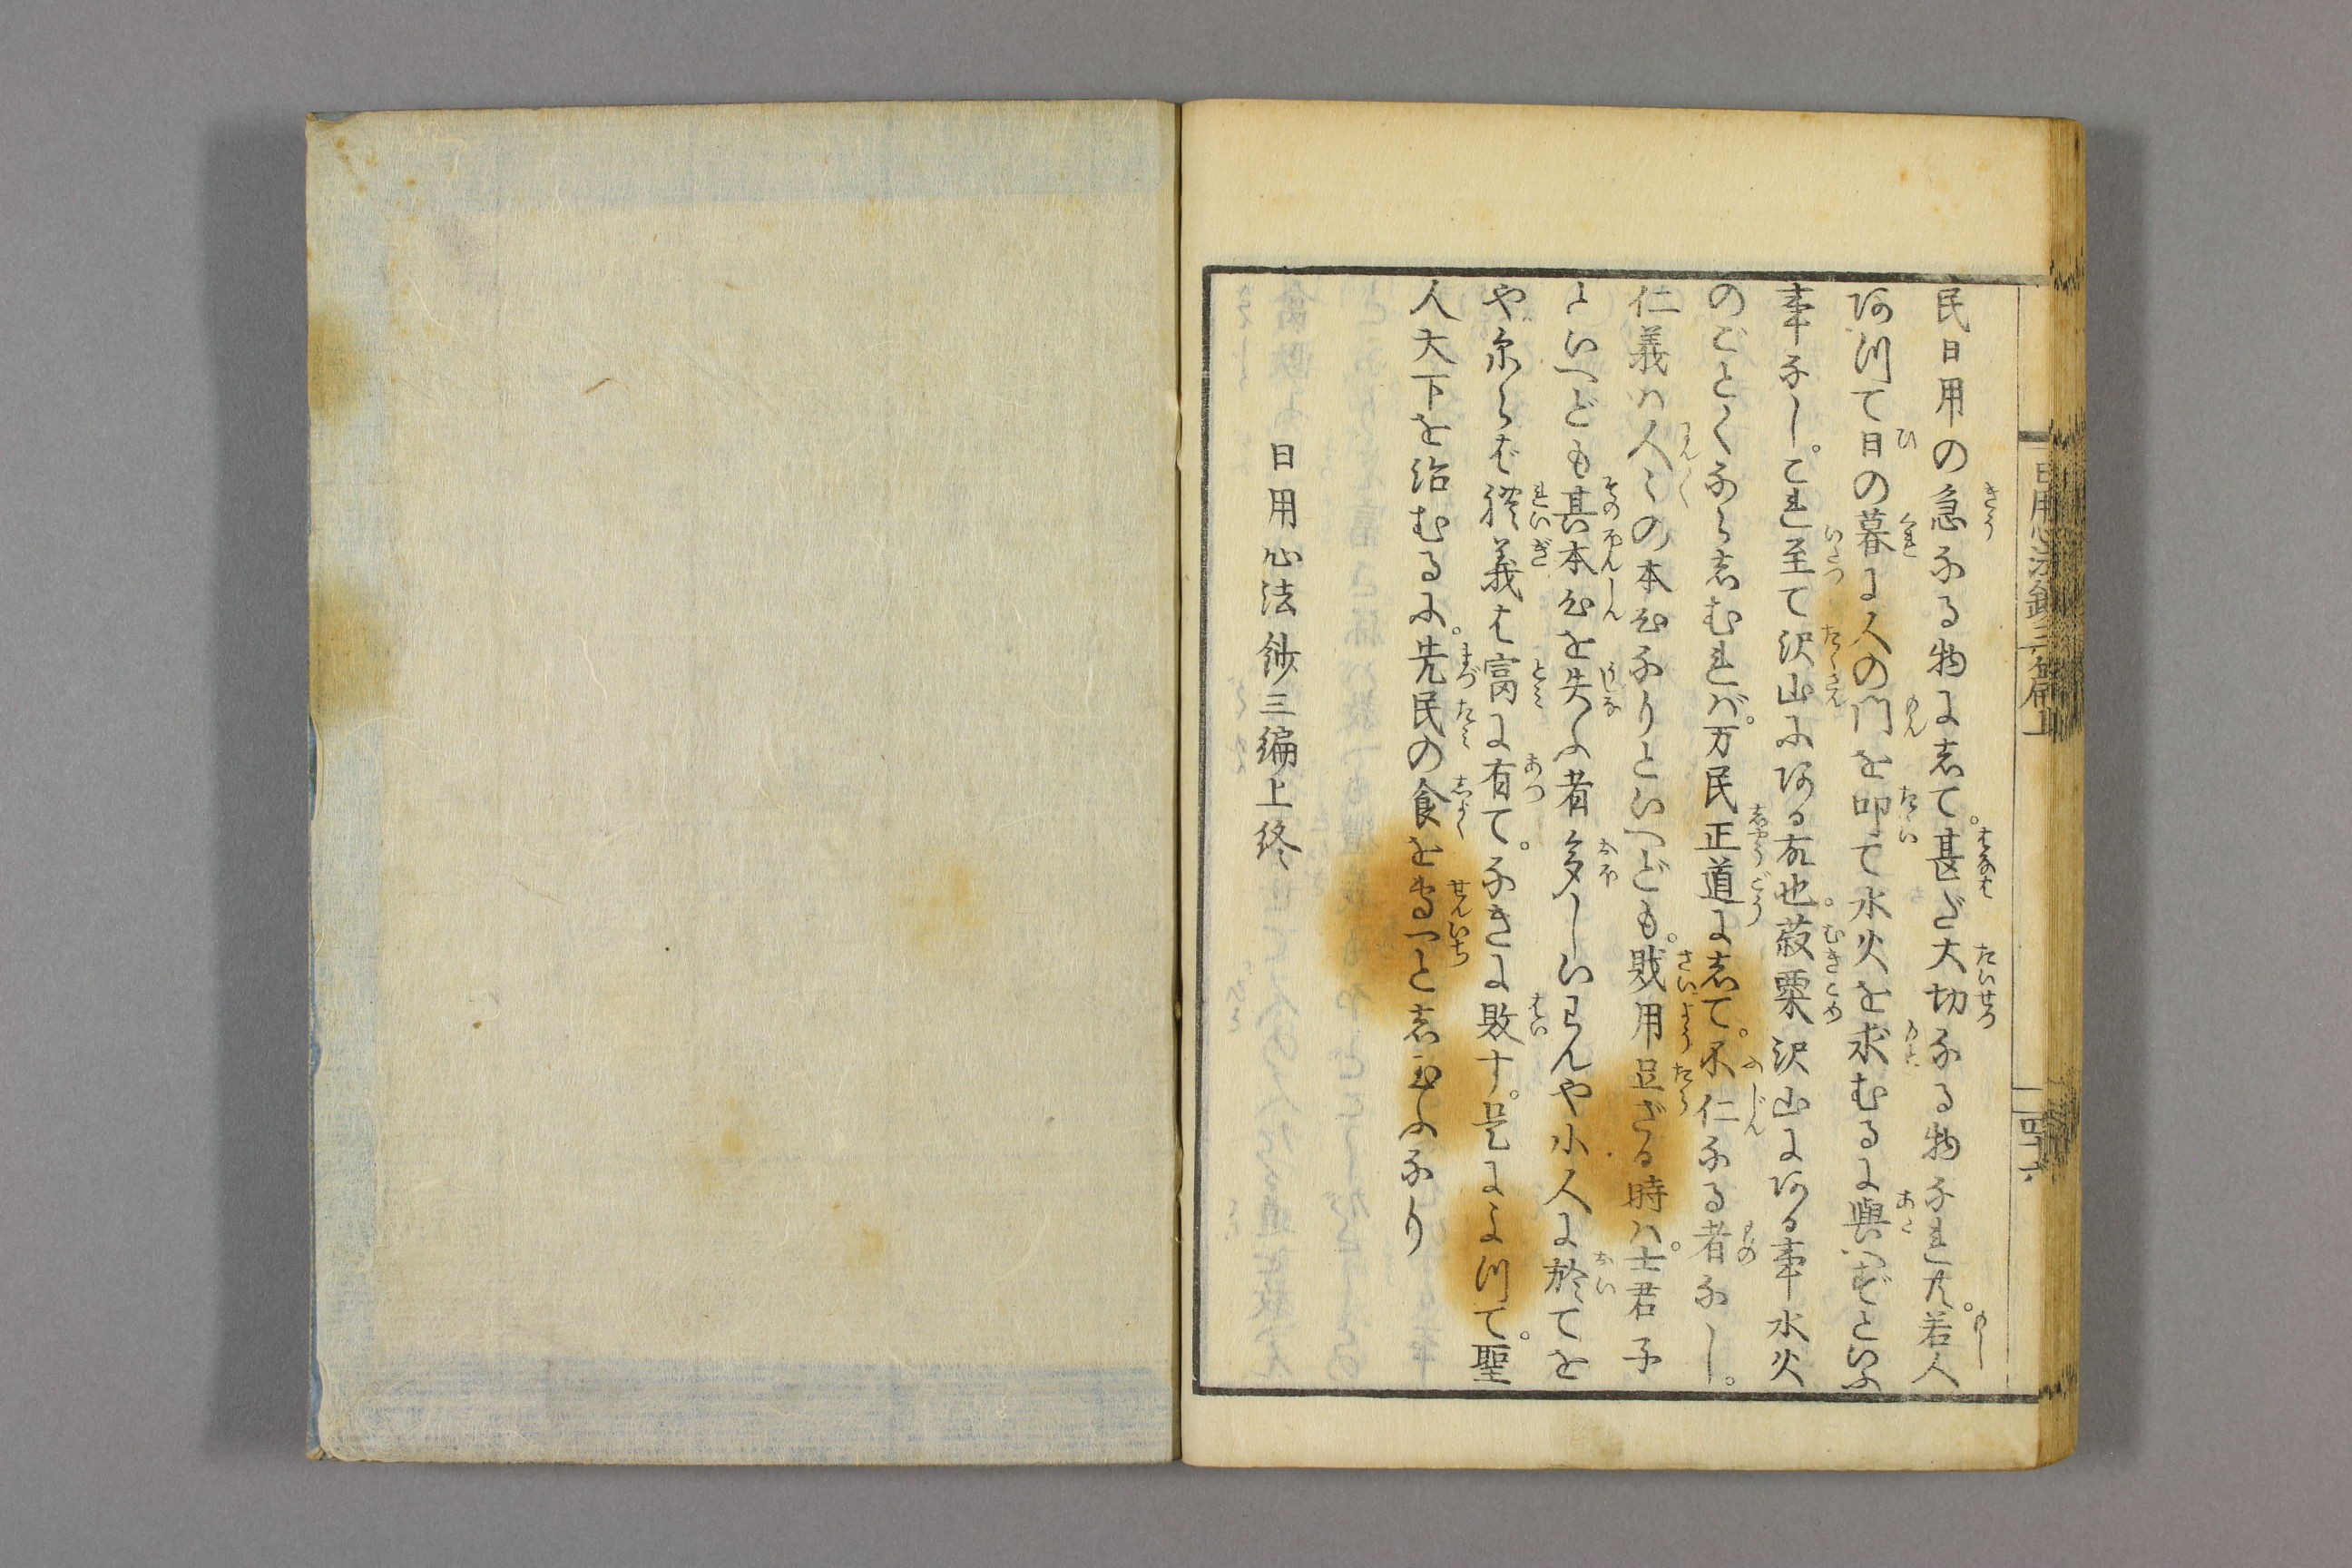 民日用の急なる物にして。甚だ大切なる物なれ共。若人
有つて日の暮に人の門を叩て水火を求むるに與へずといふ
事なし。これ至て沢山に有る故也。菽粟沢山に有る事水火
のごとくならしむれば。万民正道にして。不仁なる者なし。
仁義ハ人々の本心なりといへども。財用足ざる時ハ。士君子
といへども其本心を失ふ者多しいわんや小人に於てを
やならば禮義は富に有て。なきに敗す。是によつて。聖
人天下を治むるに。先民の食をせんいちとしたまふなり
日用心法鈔三編上終
日用心法鈔三篇上
四十六